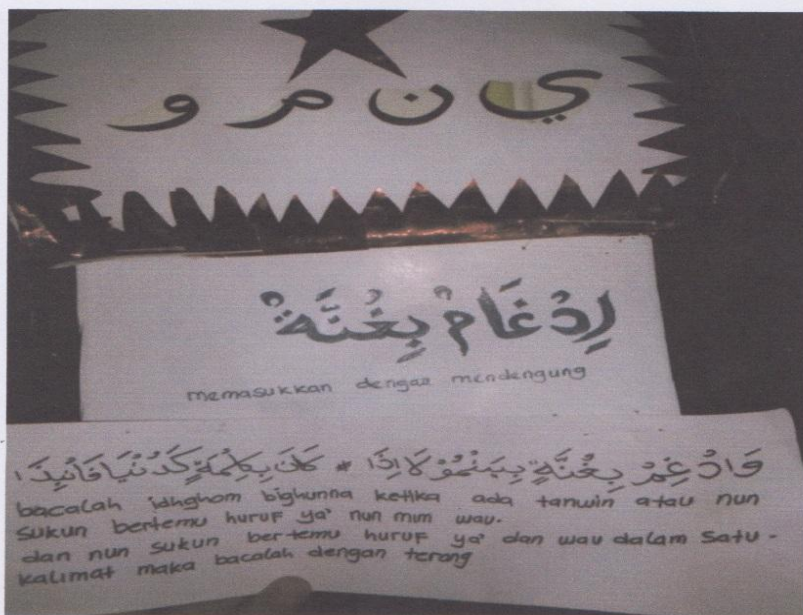 ي ن م و
إِدْغَامْ بِغُنَّةْ
memasukkan dengan mendengung
وَادْغِمْ بِغُنَّةٍ بِيَنْمُوْ لَا إِذَا * كَانَ بِكِلْمَةٍ كَدُنْيَا فَانْبِذَا
bacalah idhghom bighunna ketika ada tanwin atau nun
sukun bertemu huruf ya' nun mim wau.
dan nun sukun bertemu huruf ya' dan wau dalam satu-
kalimat maka bacalah dengan terang